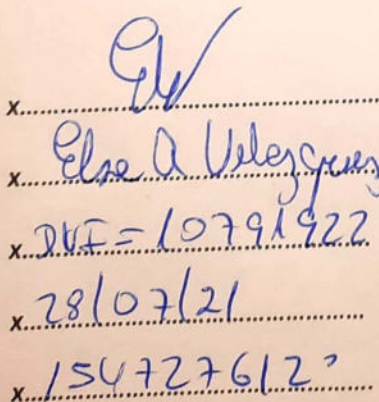 x
x Elsa A Velazquez
x DNI = 10791922
x 28/07/21
x 154727612